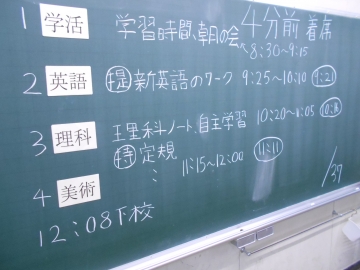 1 学活 学習時間、朝の会 4分前着席
↖8:30~9:15
2 英語 提 新英語のワーク 9:25~10:10 9:21
3 理科 理科ノート、自主学習 10:20~11:05
持 定規
4 美術 : 11:15~12:00 11:11
12:08下校
/37